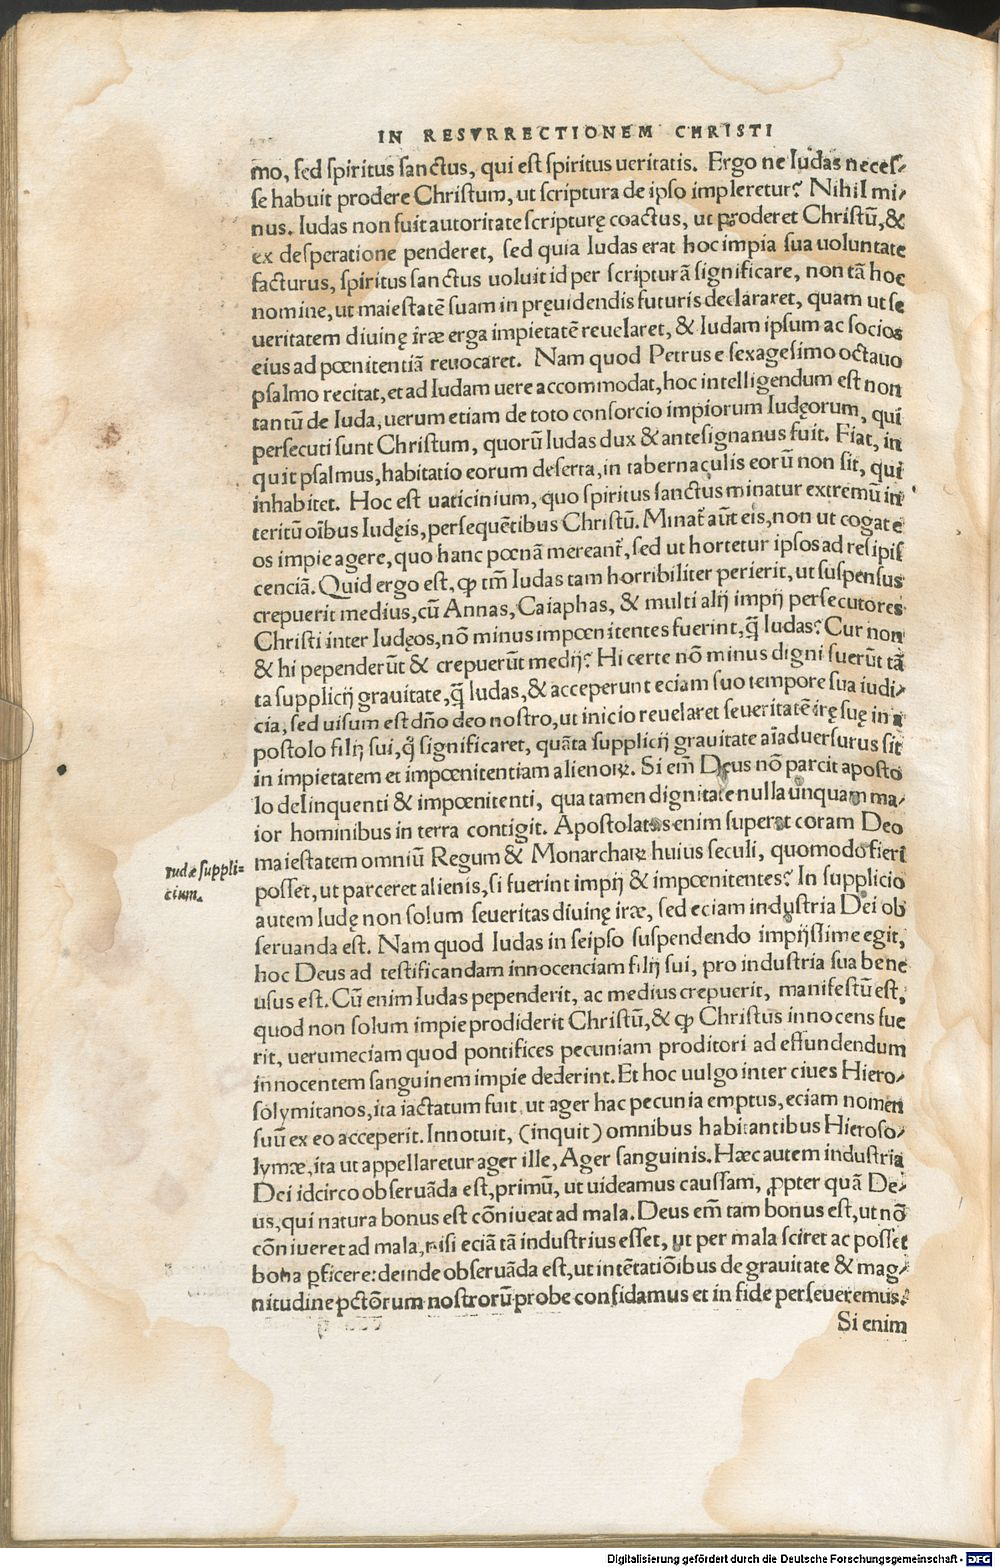 IN RESVRRECTIONEM CHRISTI
mo, sed spiritus sanctus, qui est spiritus ueritatis. Ergo ne Iudas neces⸗
se habuit prodere Christum, ut scriptura de ipso impleretur? Nihil mi⸗
nus. Iudas non fuit autoritate scripturę coactus, ut proderet Christū, &
ex desperatione penderet, sed quia Iudas erat hoc impia sua uoluntate
facturus, spiritus sanctus uoluit id per scripturā significare, non tā hoc
nomine, ut maiestatē suam in pręuidendis futuris declararet, quam ut se
ueritatem diuinę iræ erga impietatē reuelaret, & Iudam ipsum ac socios
eius ad pœnitentiā reuocaret. Nam quod Petrus e sexagesimo octauo
psalmo recitat, et ad Iudam uere accommodat, hoc intelligendum est non
tantū de Iuda, uerum etiam de toto consorcio impiorum Iudęorum, qui
persecuti sunt Christum, quorū Iudas dux & antesignanus fuit. Fiat, in
quit psalmus, habitatio eorum deserta, in tabernaculis eorū non sit, qui
inhabitet. Hoc est uaticinium, quo spiritus sanctus minatur extremū in
teritū oībus Iudęis, persequētibus Christū. Minat᷑ aūt eis, non ut cogat e
os impie agere, quo hanc pœnā mereant᷑, sed ut hortetur ipsos ad resipis
cenciā. Quid ergo est, ꝙ tm̄ Iudas tam horribiliter perierit, ut suspensus
crepuerit medius, cū Annas, Caiaphas, & multi alij impij persecutores
Christi inter Iudęos, nō minus impœnitentes fuerint, q̄ Iudas? Cur non
& hi pependerūt & crepuerūt medij? Hi certe nō minus digni fuerūt tā
ta supplicij grauitate, q̄ Iudas, & acceperunt eciam suo tempore sua iudi⸗
cia, sed uisum est dño deo nostro, ut inicio reuelaret seueritatē irę suę in a
postolo filij sui, q̊ significaret, quāta supplicij grauitate aīaduersurus sit
in impietatem et impœnitentiam alienoꝝ. Si em̄ Deus nō parcit aposto
lo delinquenti & impœnitenti, qua tamen dignitate nulla unquam ma⸗
ior hominibus in terra contigit. Apostolatus enim superat coram Deo
maiestatem omniū Regum & Monarchaꝝ huius seculi, quomodo fieri
posset, ut parceret alienis, si fuerint impij & impœnitentes? In supplicio
autem Iudę non solum seueritas diuinę iræ, sed eciam industria Dei ob
seruanda est. Nam quod Iudas in seipso suspendendo impijssime egit,
hoc Deus ad testificandam innocenciam filij sui, pro industria sua bene
usus est. Cū enim Iudas pependerit, ac medius crepuerit, manifestū est,
quod non solum impie prodiderit Christū, & ꝙ Christus innocens fue
rit, uerumeciam quod pontifices pecuniam proditori ad effundendum
innocentem sanguinem impie dederint. Et hoc uulgo inter ciues Hiero⸗
solymitanos, ita iactatum fuit, ut ager hac pecunia emptus, eciam nomen
suū ex eo acceperit. Innotuit, (inquit) omnibus habitantibus Hieroso⸗
lymæ, ita ut appellaretur ager ille, Ager sanguinis. Hæc autem industria
Dei idcirco obseruāda est, primū, ut uideamus caussam, ꝓpter quā De⸗
us, qui natura bonus est cōniueat ad mala. Deus em̄ tam bonus est, ut nō
cōniueret ad mala, nisi eciā tā industrius esset, ut per mala sciret ac posset
bona ꝑficere: deinde obseruāda est, ut in tētatiōibus de grauitate & mag⸗
nitudine pctōrum nostrorū probe confidamus et in fide perseueremus.
Si enim
Iudæ suppli=
cium.
Digitalisierung gefördert durch die Deutsche Forschungsgemeinschaft - DFG